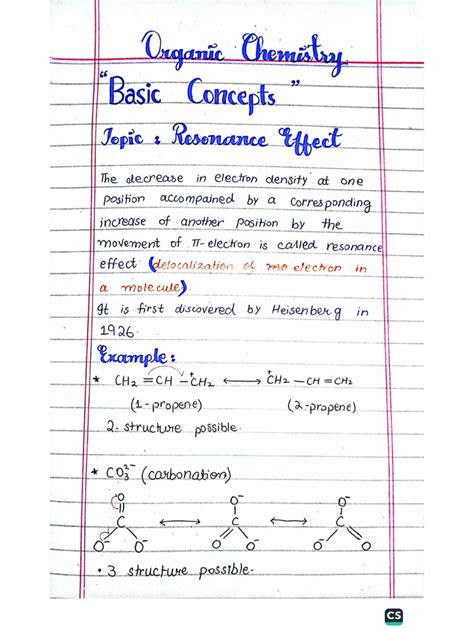 Organic Chemistry
"Basic Concepts"
Topic : Resonance Effect
The decrease in electron density at one
position accompained by a corresponding
increase of another position by the
movement of π-electron is called resonance
effect (delocalization of electron in
a molecule).
It is first discovered by Heisenberg in
1926.
Example :
* CH2 = CH - C+H2 ⟷ C+H2 - CH = CH2
(1-propene) (2-propene)
2- structure possible.
* CO3 2- (carbonation)
O O- O-
C ⟷ C ⟷ C
O- O- O O- O- O
• 3 structure possible.
CS